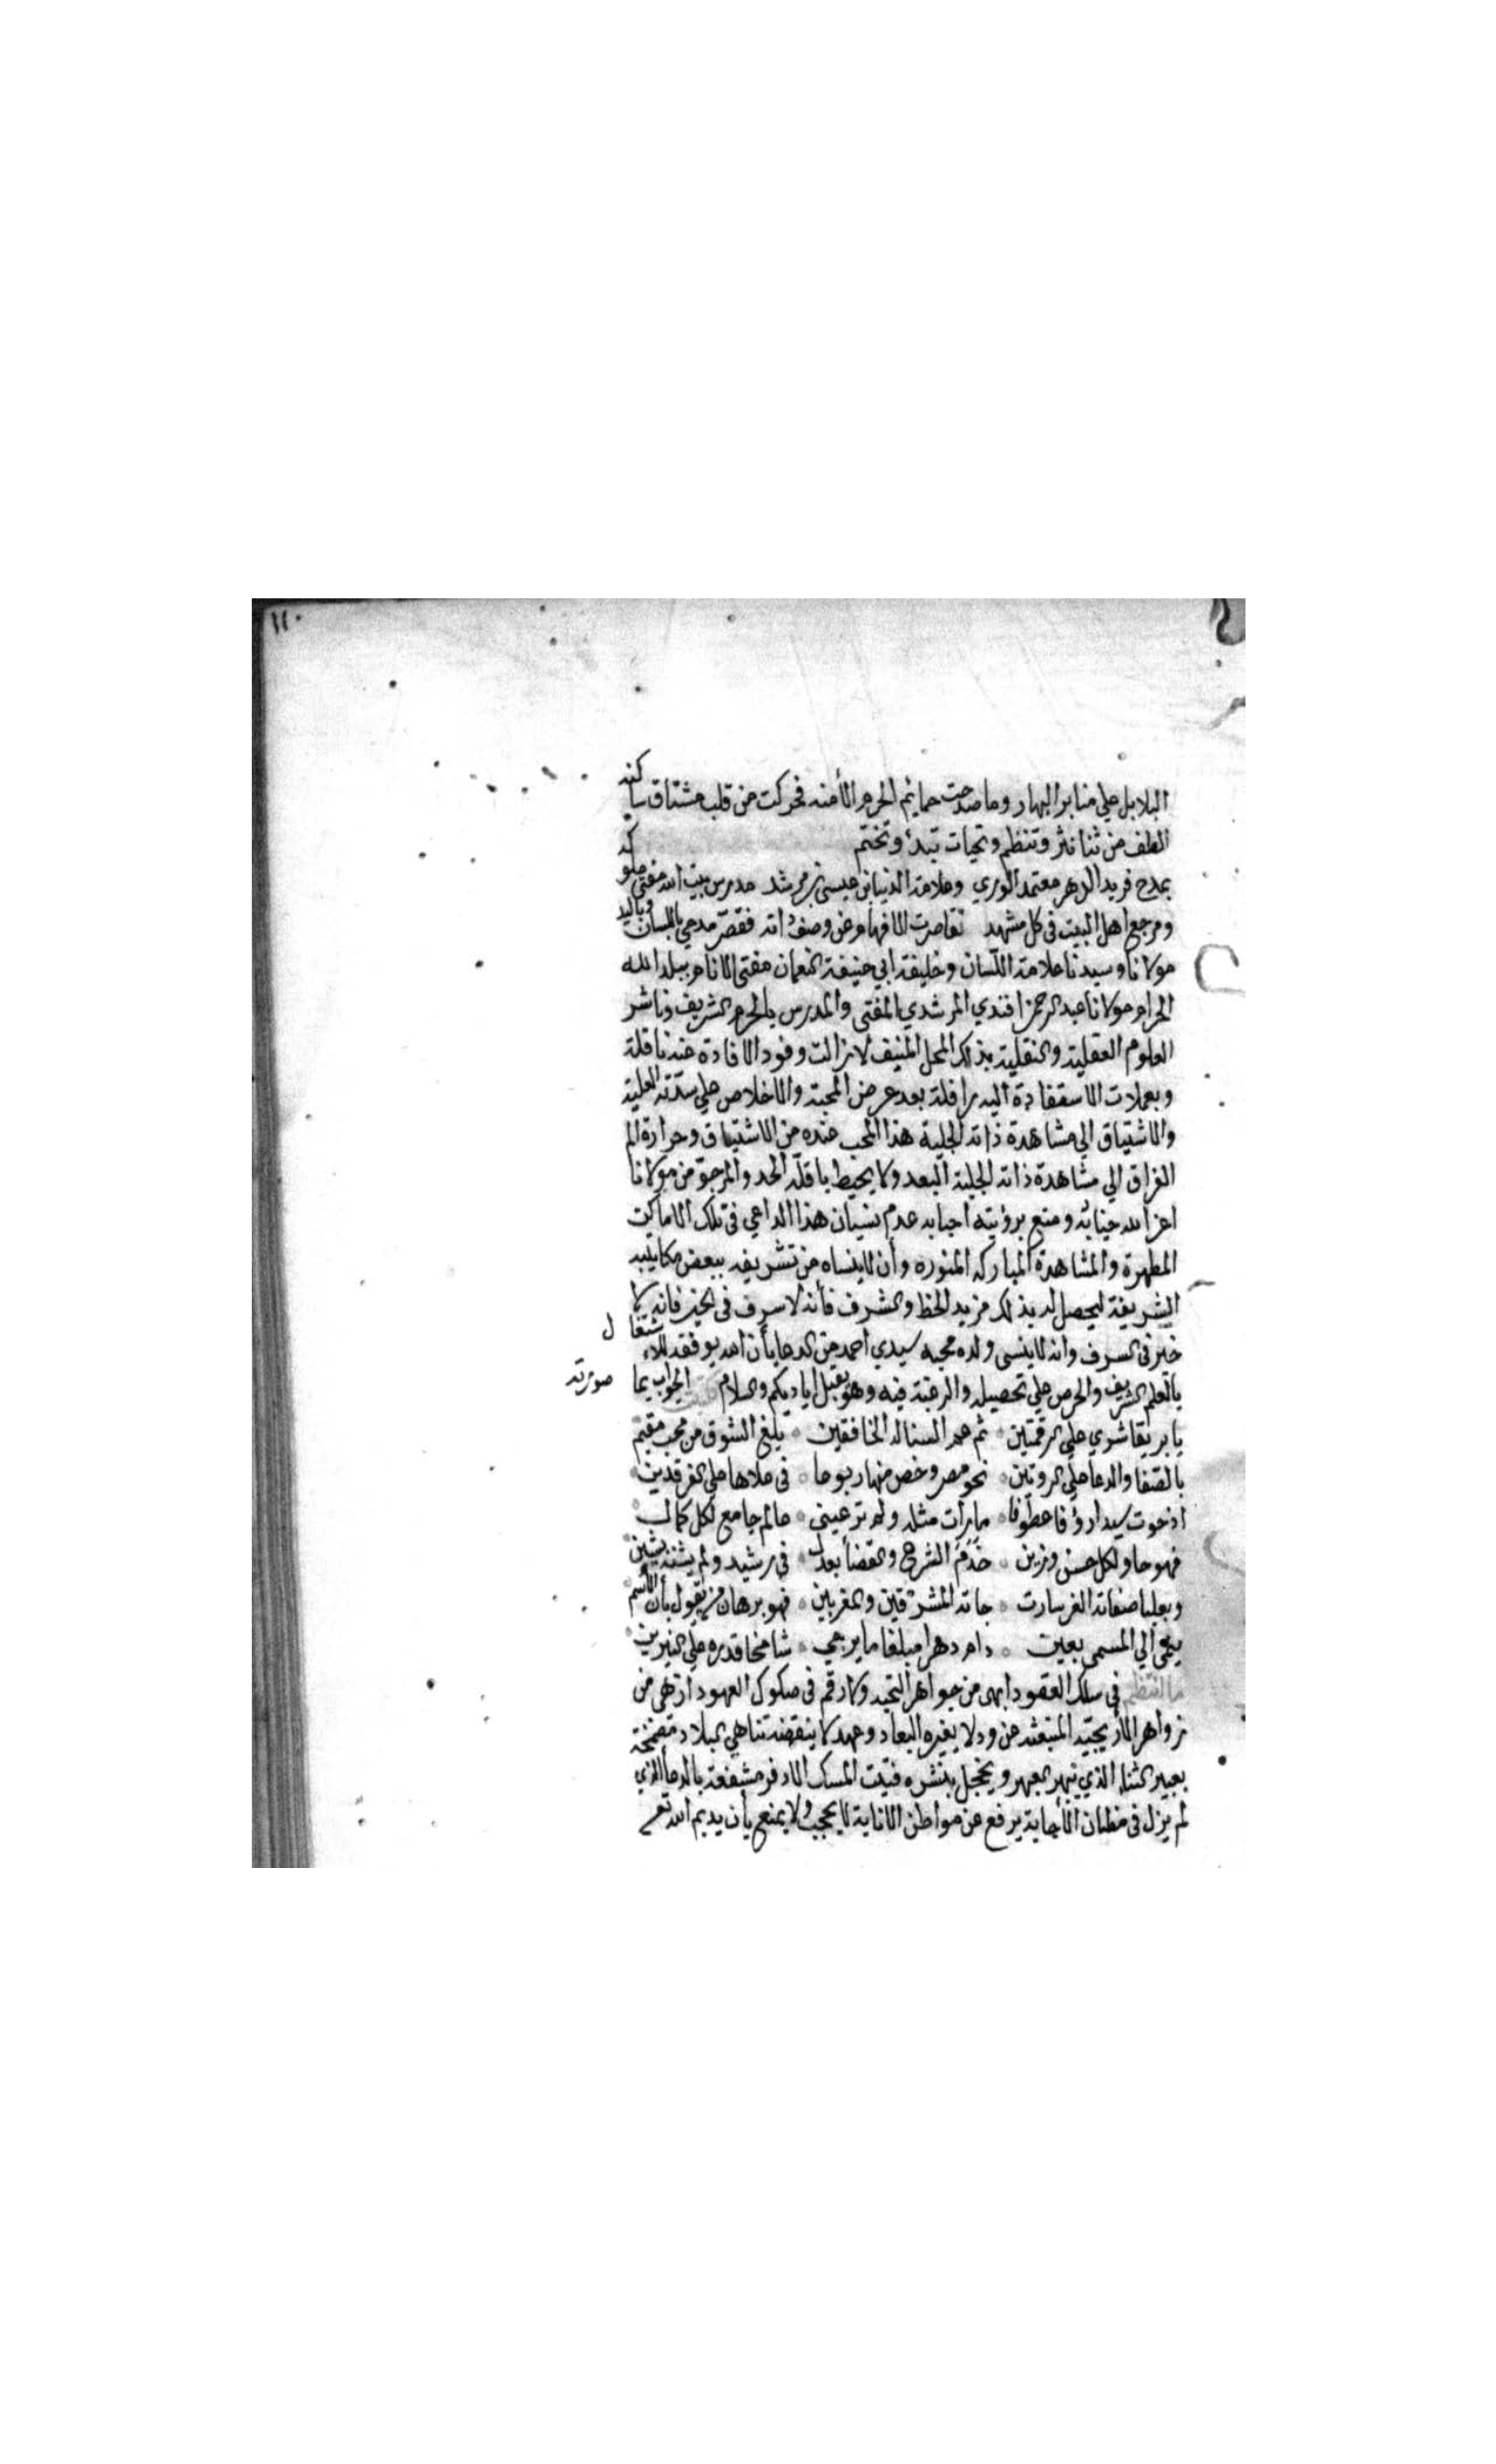 ١١٠
البلابل علي منابر البهار وما صدحت حمايم الحرم الأمنه فحركت من قلب مشتاق ساكنه
الطف من ثنا نثر وتنظم وتحيات تبدؤ وتختم
بمدح فريد الدهر معتمد الوري وعلامة الدنيا بن عيسى بن مرشد مدرس بيت الله مفتي
ومرجع اهل البيت في كل مشهد تقاصرت الافهام عن وصف ذاته فقصر مدحي باللسان وباليد
مولانا وسيدنا علامة اللسان وخليفة ابي حنيفة النعمان مفتي الانام ببلد الله
الحرام مولانا عبد الرحمن افندي المرشدي المفتي والمدرس بالحرم الشريف وناشر
العلوم العقلية والنقلية بذلك المحل المنيف لا زالت وفود الافادة عنه ناقلة
وبعملات الاستفادة اليه رافلة بعد عرض المحبة والاخلاص علي سدته العلية
والاشتياق الي مشاهدة ذاته الجلية هذا المحب عنده من الاشتياق وحرارة الم
الفراق الي مشاهدة ذاته الجلية البعد ولا يحيط باقله الحد والمرجو من مولانا
اعز الله جنابه ومتع برؤيته احبابه عدم نسيان هذا الداعي في تلك الاماكن
المطهرة والمشاهدة المباركه المنوره وأن لا ينساه من تشريفه ببعض مكاتيبه
الشريفة ليحصل له بذلك مزيد الحظ والشرف فأنه لا سرف في الخير فانه لا
خير في السرف وانه لا ينسى ولده محبه سيدي احمد من الدعا بأن الله يوفقه للاشتغال
بالعلم الشريف والحرص علي تحصيله والرغبة فيه وهو يقبل اياديكم والسلام الجواب بما صورته
يا بريقا شري علي الرقمتين ثم عم السنا له الخافقين بلغ الشوق من محب مقيم
بالصفا والدعا علي المروتين نحو مصر وخص منها ربوعا في علاها علي الفرقدين
اذ حوت سيدا رؤفا عطوفا ما رأت مثله ولم تر عيني عالم جامع لكل كمال
فهو حاو لكل حسن وزين خدم الشرع والقضا بعدل في رشيد ولم يشنه بشين
وبعليا صفاته الغر سارت جاته المشرقين والمغربين فهو برهان من يقول بأن الأسم
الي المسمى بعين دام دهرا مبلغا ما يرجي شامخا قدره علي النيرين
ما انتظم في سلك العقود ابهى من جواهر التحيه ولا رقم في صكوك العهود ازهى من
زواهر المنبعثه عن ود لا يغيره البعاد وعهد لا ينقضه تناهي البلاد متضمخة
بعبير الثناء الذي يبهر العبهر ويخجل بنشره فتيت المسك الاذفر مشفعة بالدعا الذي
لم يزل في مظان الأجابة يرفع عن مواطن الانابة لا يحجب ولا يمنع بأن يديم الله تعـ